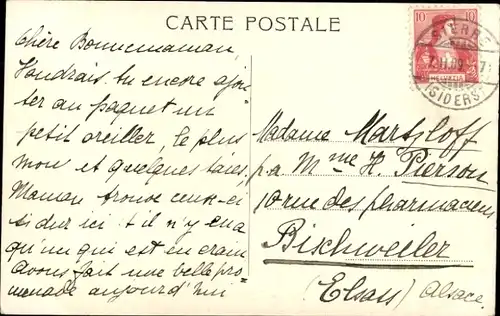 CARTE POSTALE
Chère Bonnemaman,
Voudrais-tu encore ajou-
ter au paquet un
petit oreiller, le plus
mou et quelques taies.
Maman trouve ceux-ci
si dur ici ; il n'y en a
qu'un qui est en crain
avons fait une belle pro-
menade aujourd'hui
10
10
HELVETIA
SIERRE
II.09
(SIDERS)
Madame Martzloff
p.a Mme H. Pierson
10 rue des pharmaciens
Bischweiler
(Elsass) Alsace.